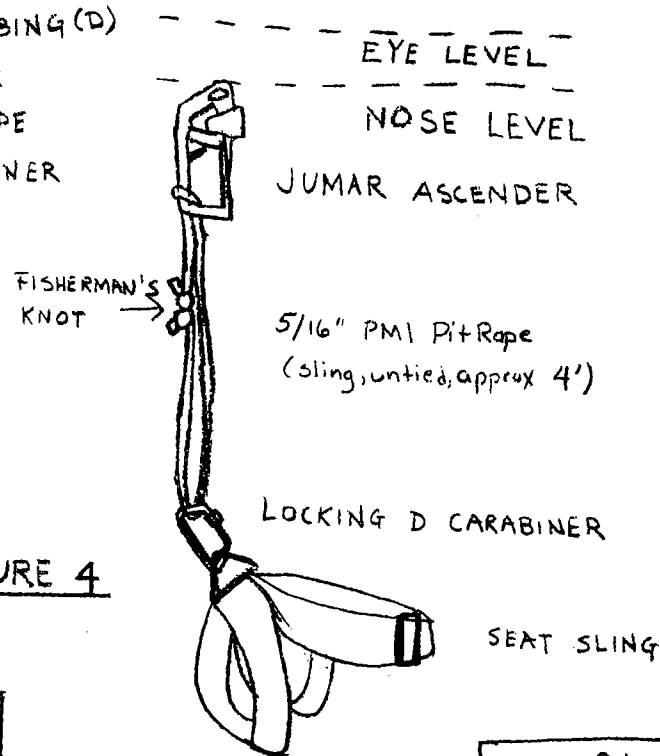 BING (D)
EYE LEVEL
NOSE LEVEL
PE
NER
JUMAR ASCENDER
FISHERMAN'S
KNOT
5/16" PMI Pit Rope
(sling, untied, approx 4')
LOCKING D CARABINER
URE 4
SEAT SLING